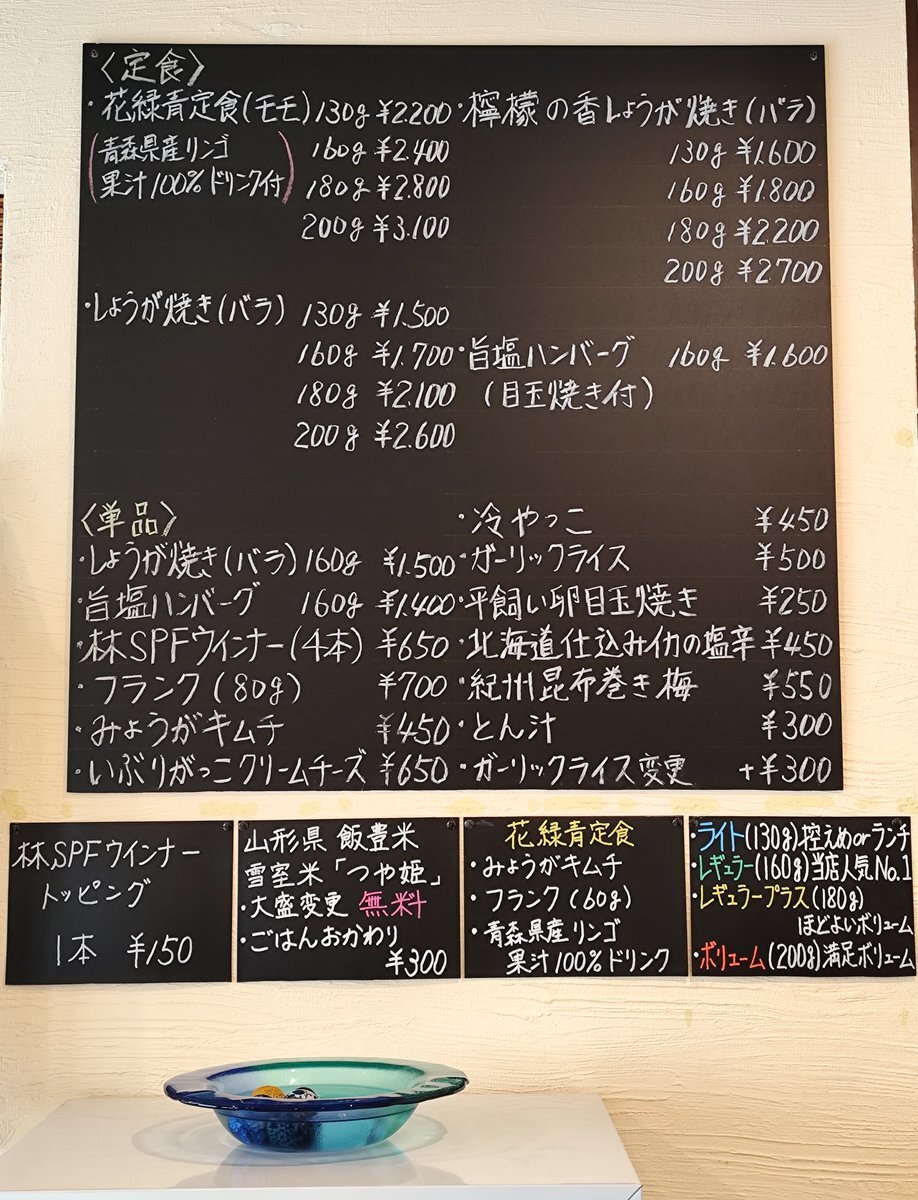 〈定食〉
・花緑青定食(モモ) 130g ¥2.200
(青森県産リンゴ 160g ¥2.400
果汁100%ドリンク付) 180g ¥2.800
200g ¥3.100
・しょうが焼き(バラ) 130g ¥1.500
160g ¥1.700
180g ¥2.100
200g ¥2.600
・檸檬の香しょうが焼き(バラ)
130g ¥1.600
160g ¥1.800
180g ¥2.200
200g ¥2.700
・旨塩ハンバーグ 160g ¥1.600
(目玉焼き付)
〈単品〉
・しょうが焼き(バラ) 160g ¥1.500
・旨塩ハンバーグ 160g ¥1.400
・林SPFウインナー(4本) ¥650
・フランク(80g) ¥700
・みょうがキムチ ¥450
・いぶりがっこクリームチーズ ¥650
・冷やっこ ¥450
・ガーリックライス ¥500
・平飼い卵目玉焼き ¥250
・北海道仕込みイカの塩辛 ¥450
・紀州昆布巻き梅 ¥550
・とん汁 ¥300
・ガーリックライス変更 +¥300
林SPFウインナー
トッピング
1本 ¥150
山形県 飯豊米
雪室米「つや姫」
・大盛変更 無料
・ごはんおかわり
¥300
花緑青定食
・みょうがキムチ
・フランク(60g)
・青森県産リンゴ
果汁100%ドリンク
・ライト(130g)控えめorランチ
・レギュラー(160g)当店人気No.1
・レギュラープラス(180g)
ほどよいボリューム
・ボリューム(200g)満足ボリューム